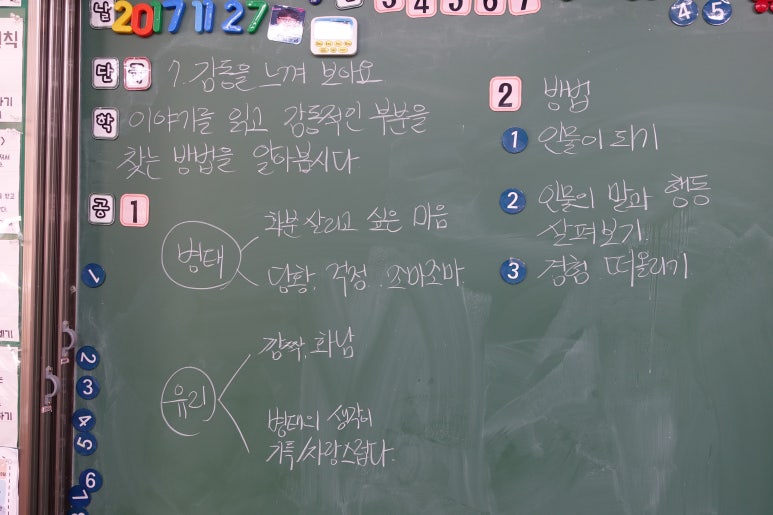 날 2017 11 27
3 4 5 6 7
4 5
단 국 7. 감동을 느껴 보아요
학 이야기를 읽고 감동적인 부분을
찾는 방법을 알아봅시다
공 1
병태
화분 살리고 싶은 마음
당황, 걱정, 조마조마
유리
깜짝, 화남
병태의 생각이
기특/사랑스럽다.
2 방법
1 인물이 되기
2 인물의 말과 행동
살펴보기
3 경험 떠올리기
1
2
3
4
5
6
7